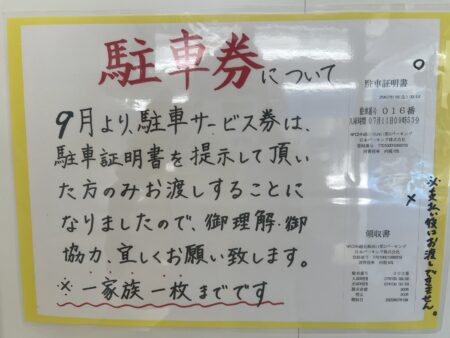 駐車券について
9月より、駐車サービス券は、
駐車証明書を提示して頂い
た方のみお渡しすることに
なりましたので、御理解・御
協力、宜しくお願い致します。
※一家族一枚までです
駐車証明書
駐車番号 016番
入庫時間 07月11日09時55分
領収書
※支払い後はお渡しできません。